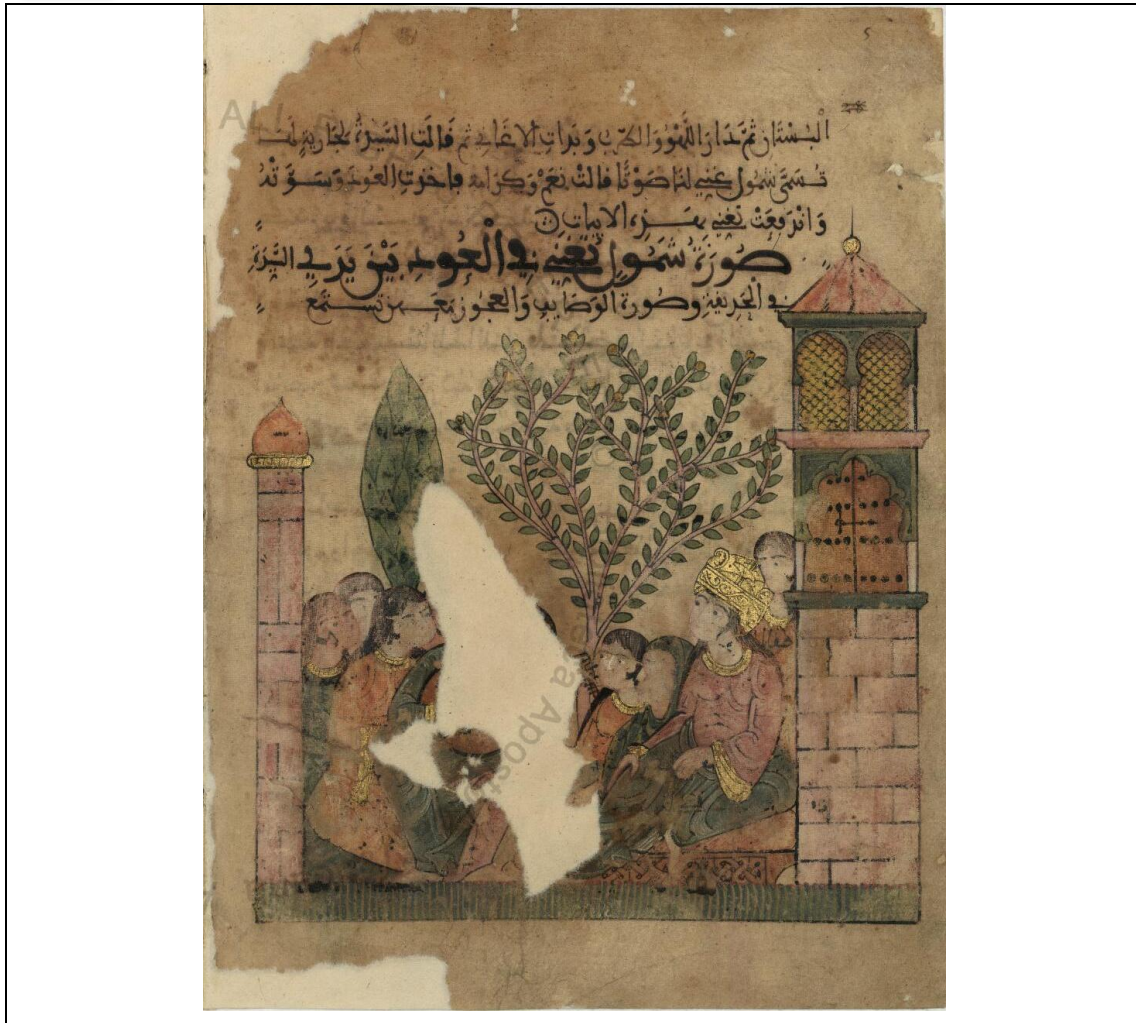 5
البستان ثم دار اللهو والطرب وبدات الاغاني ثم قالت السيدة لجارية لها
تسمى شمول غني لنا صوتا قالت نعم وكرامة فاخذت العود وسوته
واندفعت تغني بهذه الابيات
صورة شمول تغني في العود بين يدي السيدة
في الحديقة وصورة الوصايف والعجوز معهن تستمع